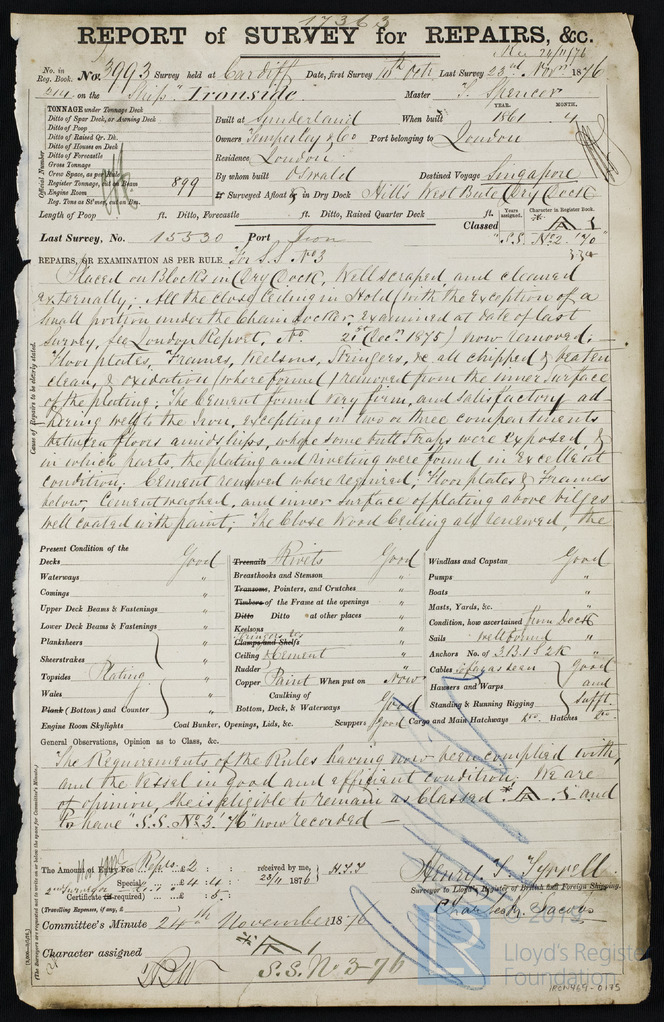 17363
REPORT of SURVEY for REPAIRS, &c.
No. in Reg. Book. No. 3993 Survey held at Cardiff Date, first Survey 10th Oct. Last Survey 23rd Novr 1876
on the Ship "Ironside" Master T. Spencer
TONNAGE under Tonnage Deck
Ditto of Spar Deck, or Awning Deck
Ditto of Poop
Ditto of Raised Qr. Dk.
Ditto of Houses on Deck
Ditto of Forecastle
Gross Tonnage
Crew Space, as per Rule
Register Tonnage, cut on Beam 899
Engine Room
Reg. Tons as St'mer, cut on Bm.
Official Number
YEAR. MONTH.
Built at Sunderland When built 1861 4
Owners Temperley & Co Port belonging to London
Residence London
By whom built Oswald Destined Voyage Singapore
If Surveyed Afloat or in Dry Dock Hill's West Bute Dry Dock
Length of Poop ft. Ditto, Forecastle ft. Ditto, Raised Quarter Deck ft.
Years assigned. Character in Register Book.
Classed A 1
"S.S. No 2 '70"
Last Survey, No. 15530 Port Iron
REPAIRS, OR EXAMINATION AS PER RULE For S.S. No 3
Placed on Blocks in Dry Dock, Well scraped and cleaned
externally; All the close Ceiling in Hold (with the exception of a
small portion under the Chain Locker, examined at date of last
Survey, see London Report, No 21st Decr. 1875) now removed;
Floor plates, Frames, Keelsons, Stringers, &c all chipped & beaten
clean, & oxidation (where found) removed from the inner surface
of the plating; The Cement found very firm, and satisfactory ad-
hering well to the Iron, excepting in two or three compartments
between floors amidships, where some butt straps were exposed, &
in which parts, the plating and riveting were found in excellent
condition; Cement renewed where required; Floor plates & Frames
below, Cement washed, and inner surface of plating above bilges
well coated with paint; The Close Wood Ceiling all renewed, the
Cause of Repairs to be clearly stated.
Present Condition of the
Decks Good
Waterways "
Comings "
Upper Deck Beams & Fastenings "
Lower Deck Beams & Fastenings "
Planksheers "
Sheerstrakes
Topsides Plating "
Wales
Plank (Bottom) and Counter "
Engine Room Skylights
Treenails Rivets Good
Breasthooks and Stemson "
Transoms, Pointers, and Crutches "
Timbers of the Frame at the openings "
Ditto Ditto at other places "
Keelsons "
Clamps and Shelfs Stringers to "
Ceiling & Cement "
Rudder "
Copper Paint When put on Now
Caulking of
Bottom, Deck, & Waterways Good
Coal Bunker, Openings, Lids, &c. Scuppers Good
Windlass and Capstan Good
Pumps "
Boats "
Masts, Yards, &c. "
Condition, how ascertained from Deck
Sails well found "
Anchors No. of 3. B. 1 S 2 K "
Cables so far as seen Good
Hausers and Warps and
Standing & Running Rigging Sufft.
Cargo and Main Hatchways Do. Hatches Do.
General Observations, Opinion as to Class, &c.
The Requirements of the Rules having now been complied with,
and the Vessel in good and efficient condition, We are
of opinion, She is eligible to remain as Classed A 1 and
to have "S.S. No 3. '76" now recorded—
The Amount of Entry Fee Reprs. £2 : : received by me,
Special £4 : 4 : 23/11 1876
Certificate (if required) £ : 5 :
(Travelling Expenses, if any, £ )
Henry T. Tyrrell
Surveyor to Lloyd's Register of British and Foreign Shipping.
Committee's Minute 24th November 1876
Character assigned A 1
S.S. No 3-76
Lloyd's Register
Foundation
IRON469-0175